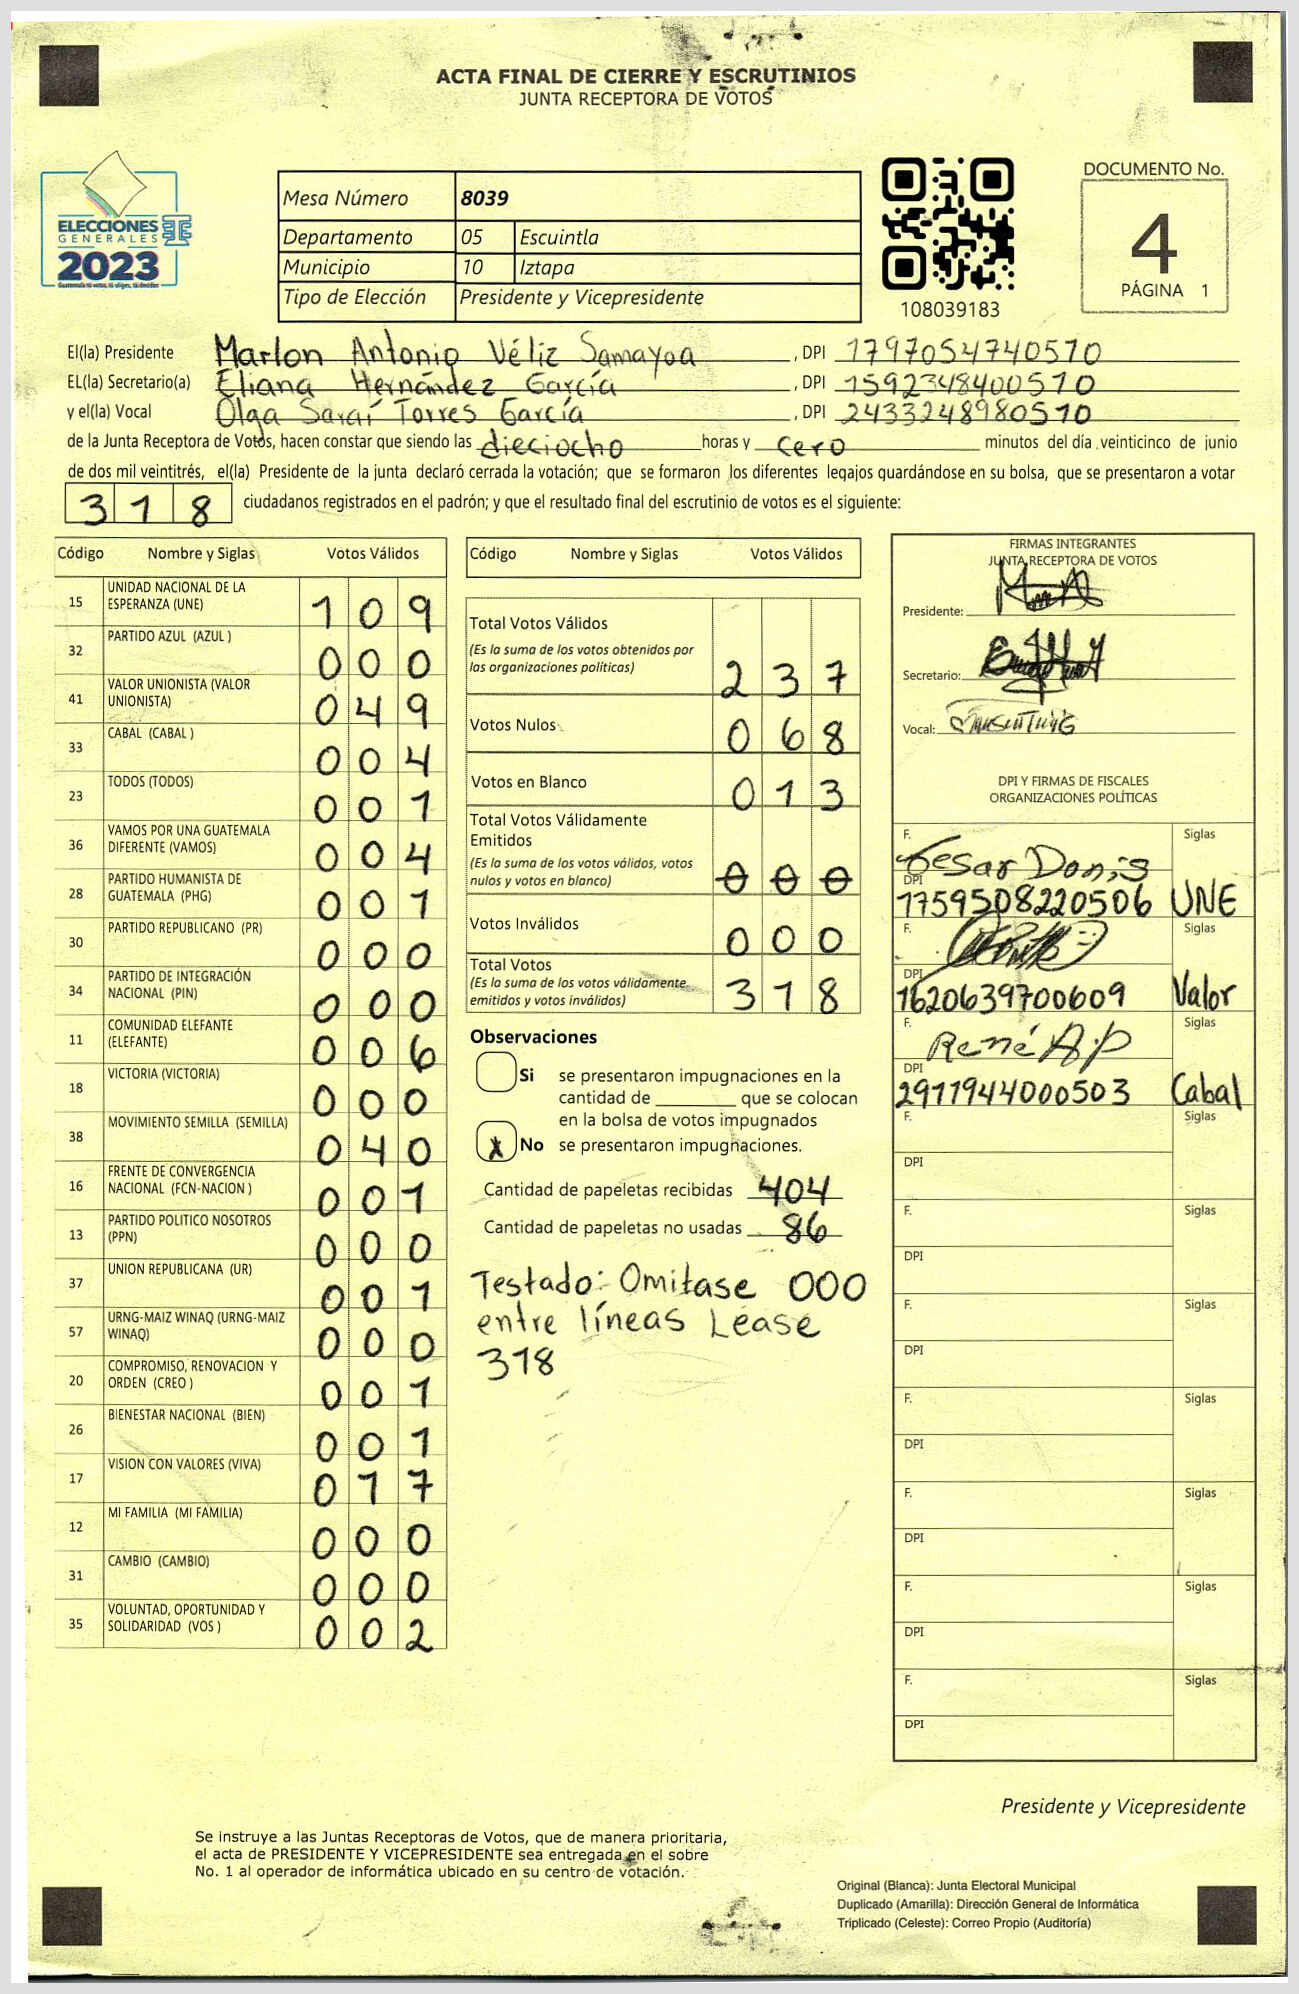 ACTA FINAL DE CIERRE Y ESCRUTINIOS
JUNTA RECEPTORA DE VOTOS
ELECCIONES
GENERALES
2023
Guatemala tú votas, tú eliges, tú decides
Mesa Número 8039
Departamento 05 Escuintla
Municipio 10 Iztapa
Tipo de Elección Presidente y Vicepresidente
108039183
DOCUMENTO No.
4
PÁGINA 1
El(la) Presidente Marlon Antonio Véliz Samayoa, DPI 1797054740510
EL(la) Secretario(a) Eliana Hernández García, DPI 1592348400510
y el(la) Vocal Olga Saraí Torres García, DPI 2433248980510
de la Junta Receptora de Votos, hacen constar que siendo las dieciocho horas y cero minutos del día veinticinco de junio
de dos mil veintitrés, el(la) Presidente de la junta declaró cerrada la votación; que se formaron los diferentes legajos guardándose en su bolsa, que se presentaron a votar
318 ciudadanos registrados en el padrón; y que el resultado final del escrutinio de votos es el siguiente:
Código Nombre y Siglas Votos Válidos
15 UNIDAD NACIONAL DE LA ESPERANZA (UNE) 109
32 PARTIDO AZUL (AZUL ) 000
41 VALOR UNIONISTA (VALOR UNIONISTA) 049
33 CABAL (CABAL ) 004
23 TODOS (TODOS) 001
36 VAMOS POR UNA GUATEMALA DIFERENTE (VAMOS) 004
28 PARTIDO HUMANISTA DE GUATEMALA (PHG) 001
30 PARTIDO REPUBLICANO (PR) 000
34 PARTIDO DE INTEGRACIÓN NACIONAL (PIN) 000
11 COMUNIDAD ELEFANTE (ELEFANTE) 006
18 VICTORIA (VICTORIA) 000
38 MOVIMIENTO SEMILLA (SEMILLA) 040
16 FRENTE DE CONVERGENCIA NACIONAL (FCN-NACION ) 001
13 PARTIDO POLITICO NOSOTROS (PPN) 000
37 UNION REPUBLICANA (UR) 001
57 URNG-MAIZ WINAQ (URNG-MAIZ WINAQ) 000
20 COMPROMISO, RENOVACION Y ORDEN (CREO ) 001
26 BIENESTAR NACIONAL (BIEN) 001
17 VISION CON VALORES (VIVA) 017
12 MI FAMILIA (MI FAMILIA) 000
31 CAMBIO (CAMBIO) 000
35 VOLUNTAD, OPORTUNIDAD Y SOLIDARIDAD (VOS ) 002
Código Nombre y Siglas Votos Válidos
Total Votos Válidos 237
(Es la suma de los votos obtenidos por
las organizaciones políticas)
Votos Nulos 068
Votos en Blanco 013
Total Votos Válidamente
Emitidos 000
(Es la suma de los votos válidos, votos
nulos y votos en blanco)
Votos Inválidos 000
Total Votos 318
(Es la suma de los votos válidamente
emitidos y votos inválidos)
Observaciones
Si se presentaron impugnaciones en la
cantidad de ________ que se colocan
en la bolsa de votos impugnados
X No se presentaron impugnaciones.
Cantidad de papeletas recibidas 404
Cantidad de papeletas no usadas 86
Testado: Omitase 000
entre líneas Léase
318
FIRMAS INTEGRANTES
JUNTA RECEPTORA DE VOTOS
Presidente:
Secretario:
Vocal:
DPI Y FIRMAS DE FISCALES
ORGANIZACIONES POLÍTICAS
F. Cesar Donis Siglas
DPI 1759508220506 UNE
F. Siglas
DPI 1620639700609 Valor
F. René A.P Siglas
DPI 2911944000503 Cabal
F. Siglas
DPI
F. Siglas
DPI
F. Siglas
DPI
F. Siglas
DPI
F. Siglas
DPI
F. Siglas
DPI
F. Siglas
DPI
Presidente y Vicepresidente
Se instruye a las Juntas Receptoras de Votos, que de manera prioritaria,
el acta de PRESIDENTE Y VICEPRESIDENTE sea entregada en el sobre
No. 1 al operador de informática ubicado en su centro de votación.
Original (Blanca): Junta Electoral Municipal
Duplicado (Amarilla): Dirección General de Informática
Triplicado (Celeste): Correo Propio (Auditoría)